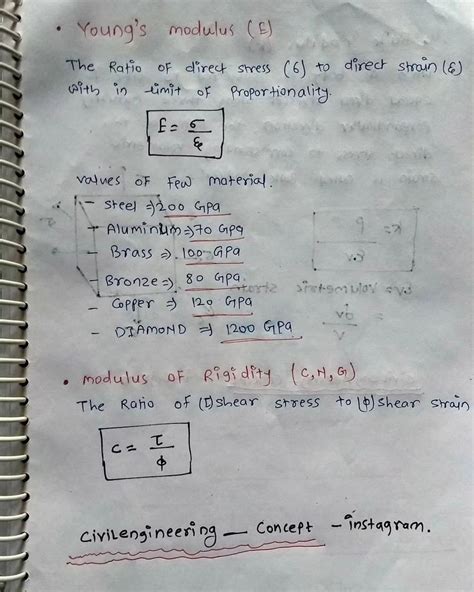 • Young's modulus (E)
The Ratio of direct stress (σ) to direct strain (ε)
with in limit of proportionality.
E = σ / ε
values of Few material.
- Steel ⇒ 200 GPa
- Aluminium ⇒ 70 GPa
- Brass ⇒ 100 GPa
- Bronze ⇒ 80 GPa.
- Copper ⇒ 120 GPa
- DIAMOND ⇒ 1200 GPa
• modulus of Rigidity (C, N, G)
The Ratio of (τ) shear stress to (φ) shear strain
C = τ / φ
civilengineering _ concept - instagram.